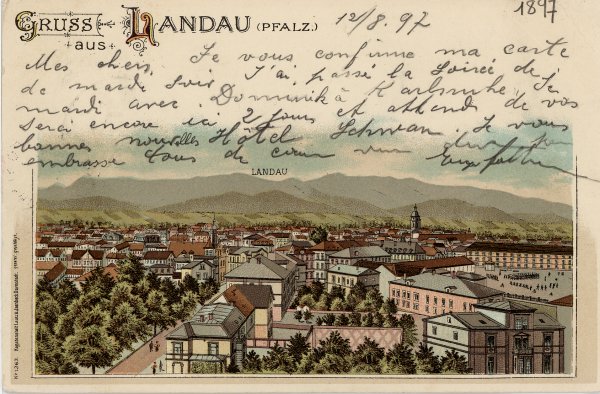 GRUSS aus LANDAU (PFALZ.)
12/8. 97
1897
Mes chers, Je vous confirme ma carte
de mardi soir. J'ai passé la soirée de
mardi avec Dominik à Karlsruhe. Je
serai encore ici 2 jours et attends de vos
bonnes nouvelles Hôtel Schwan. Je vous
embrasse tous de cœur
LANDAU